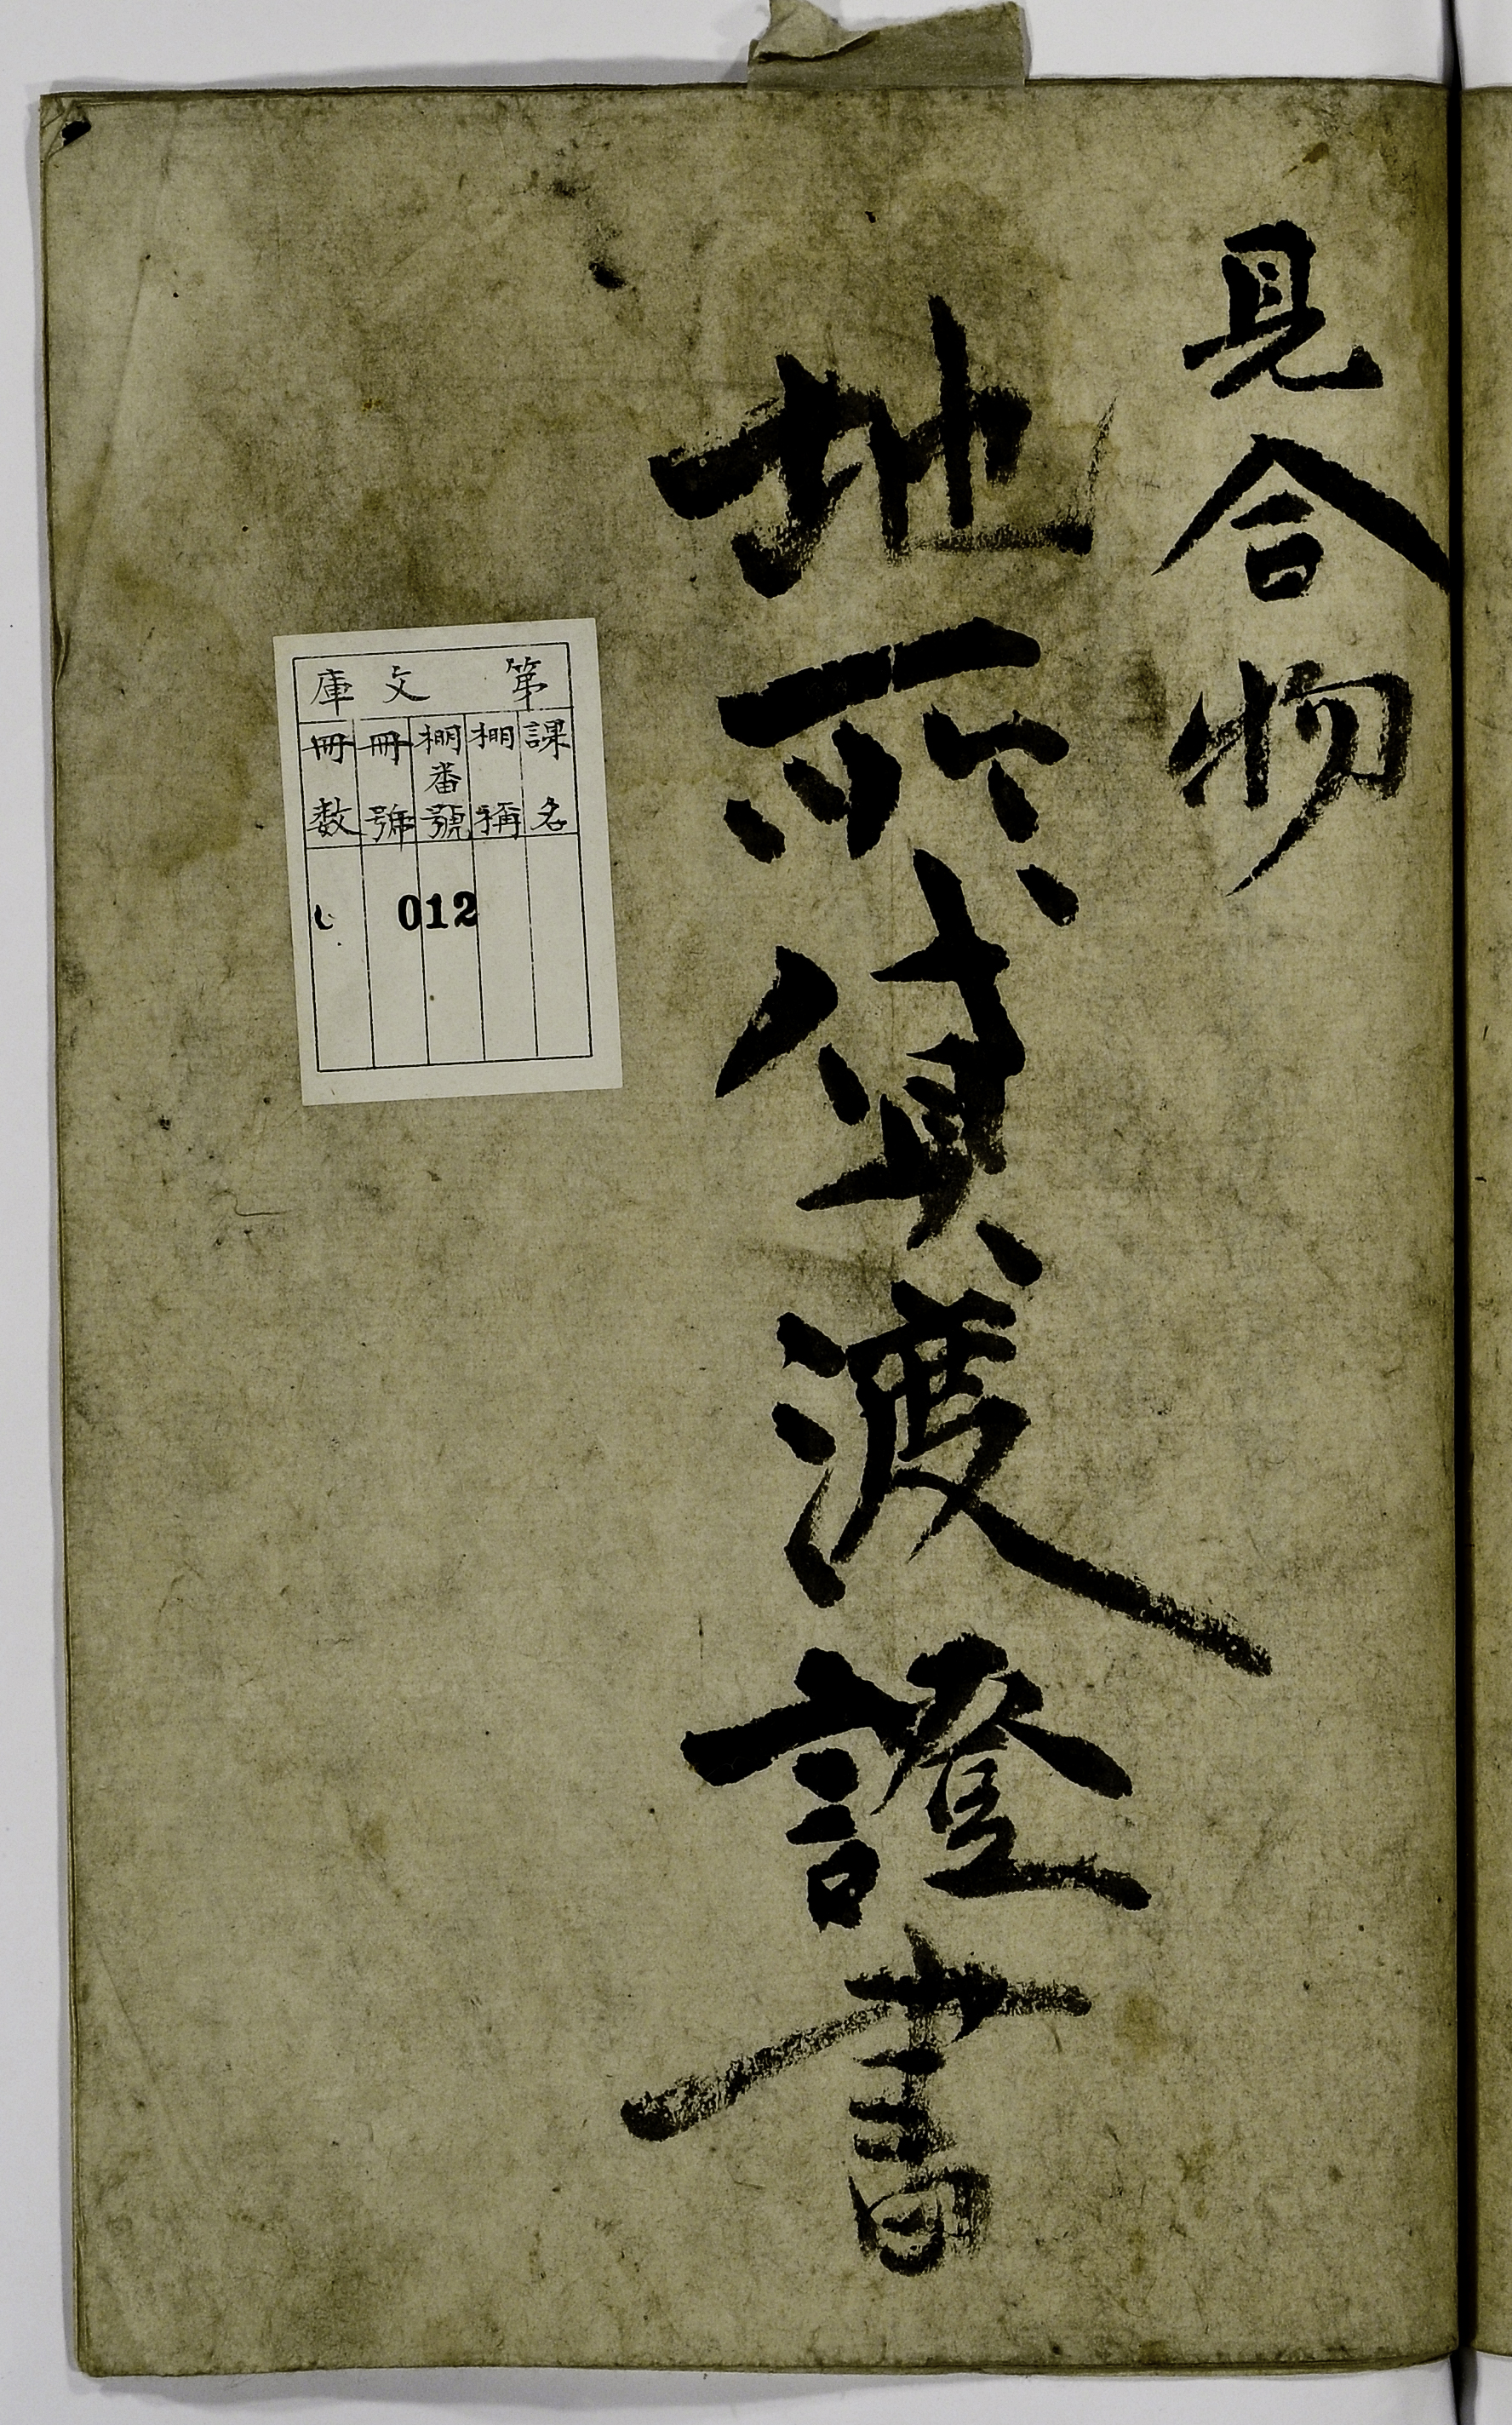 見合物
地所貸渡證書
第文庫
課名
棚稱
棚番號
冊號
冊数
012